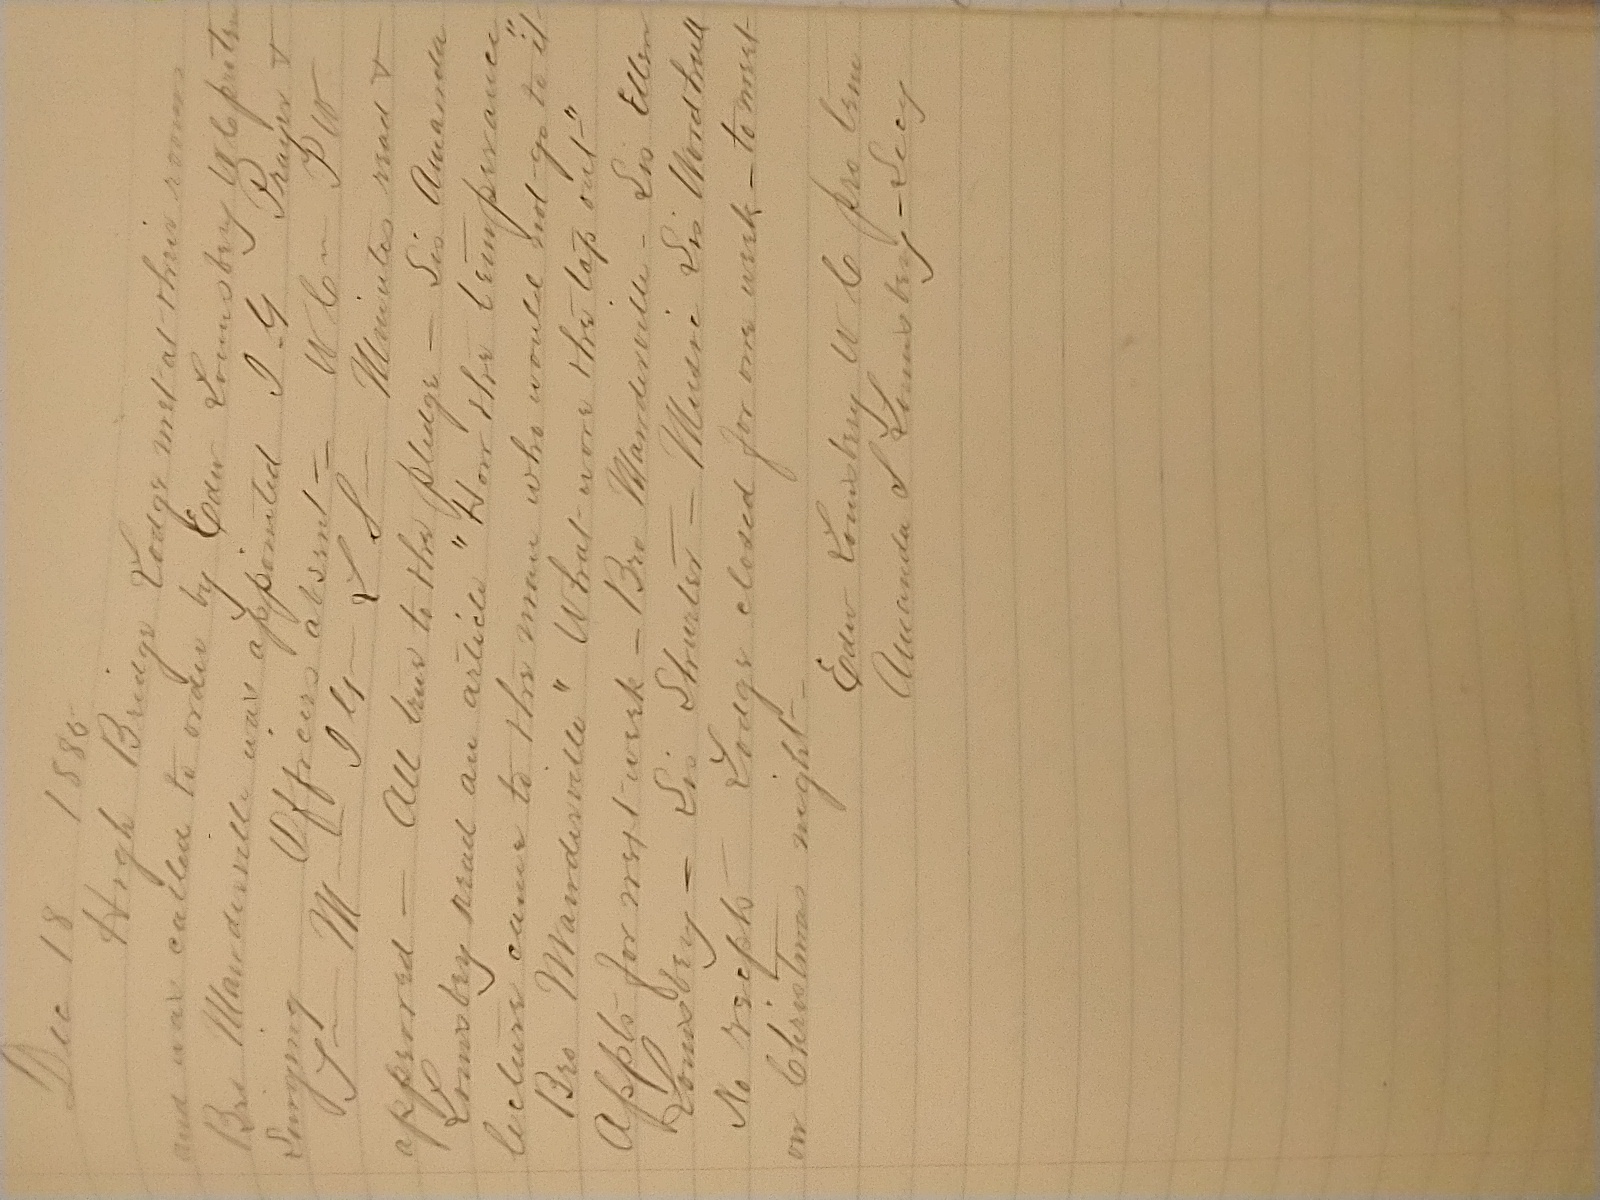 Dec 18 1885
High Bridge Lodge met at their rooms
and was called to order by Edw Lounsbery W C protem
Bro Manderville was appointed I G Prayer &
Singing Officers absent — W C — P W
T — M — I G — L S — Minutes read &
approved — All true to the pledge — Sis Amanda
Lounsbery read an article "How the temperance
lecture came to the man who would not go to it"
Bro Manderville "What wore the tap out"
Appts for next week — Bro Manderville — Sis Ellen
Lounsbery — Sis Shurter — Music Sis Wordhull
No recpts Lodge closed for one week — to meet
on Christmas night —
Edw Lounsbery W C pro tem
Amanda S Lounsbery — Secy